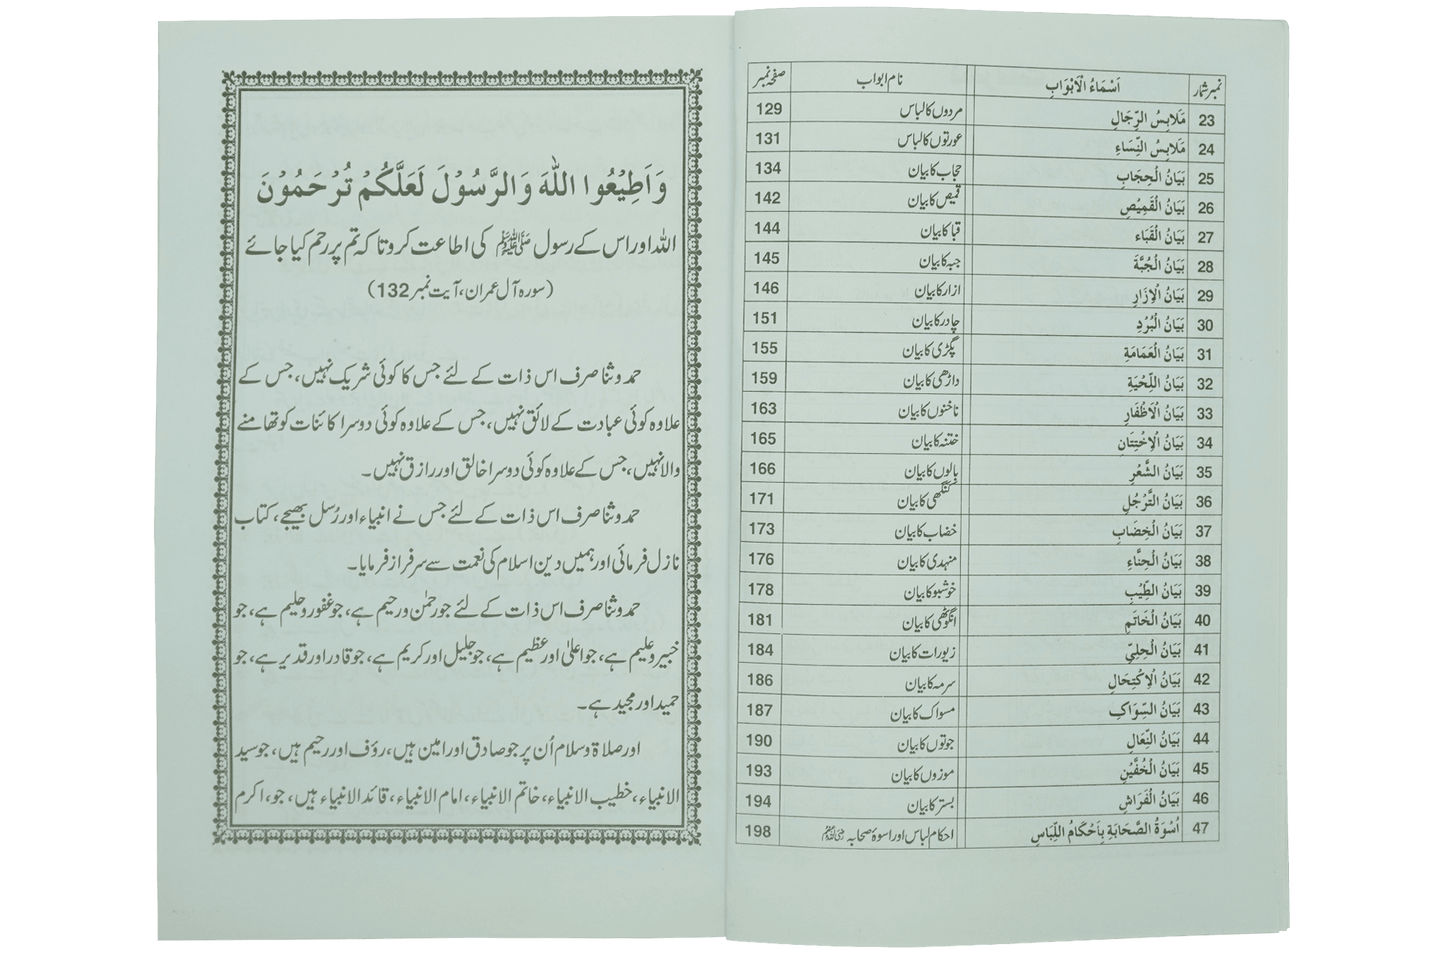 نمبر شمار اَسْمَاءُ الْاَبْوَابِ نام ابواب صفحہ نمبر
23 مَلَابِسُ الرِّجَالِ مردوں کا لباس 129
24 مَلَابِسُ النِّسَاءِ عورتوں کا لباس 131
25 بَيَانُ الْحِجَابِ حجاب کا بیان 134
26 بَيَانُ الْقَمِيْصِ قمیص کا بیان 142
27 بَيَانُ الْقَبَاء قبا کا بیان 144
28 بَيَانُ الْجُبَّةِ جبہ کا بیان 145
29 بَيَانُ الْاِزَارِ ازار کا بیان 146
30 بَيَانُ الْبُرْدِ چادر کا بیان 151
31 بَيَانُ الْعَمَامَةِ پگڑی کا بیان 155
32 بَيَانُ اللِّحْيَةِ داڑھی کا بیان 159
33 بَيَانُ الْاَظْفَارِ ناخنوں کا بیان 163
34 بَيَانُ الْاِخْتِتَانِ ختنہ کا بیان 165
35 بَيَانُ الشَّعْرِ بالوں کا بیان 166
36 بَيَانُ التَّرَجُلِ کنگھی کا بیان 171
37 بَيَانُ الْخِضَابِ خضاب کا بیان 173
38 بَيَانُ الْحِنَّاءِ منہدی کا بیان 176
39 بَيَانُ الطِّيْبِ خوشبو کا بیان 178
40 بَيَانُ الْخَاتَمِ انگوٹھی کا بیان 181
41 بَيَانُ الْحِلِيِّ زیورات کا بیان 184
42 بَيَانُ الْاِكْتِحَالِ سرمہ کا بیان 186
43 بَيَانُ السِّوَاكِ مسواک کا بیان 187
44 بَيَانُ النِّعَالِ جوتوں کا بیان 190
45 بَيَانُ الْخُفَّيْنِ موزوں کا بیان 193
46 بَيَانُ الْفَرَاشِ بستر کا بیان 194
47 اُسْوَةُ الصَّحَابَةِ بِاَحْكَامُ اللِّبَاسِ احکام لباس اور اسوۂ صحابہ 198
وَاَطِيْعُوا اللّٰهَ وَالرَّسُوْلَ لَعَلَّكُمْ تُرْحَمُوْنَ
اللہ اور اس کے رسول ﷺ کی اطاعت کرو تاکہ تم پر رحم کیا جائے
(سورہ آل عمران، آیت نمبر 132)
حمد و ثنا صرف اس ذات کے لئے جس کا کوئی شریک نہیں، جس کے
علاوہ کوئی عبادت کے لائق نہیں، جس کے علاوہ کوئی دوسرا کائنات کو تھامنے
والا نہیں، جس کے علاوہ کوئی دوسرا خالق اور رازق نہیں۔
حمد و ثنا صرف اس ذات کے لئے جس نے انبیاء اور رُسل بھیجے، کتاب
نازل فرمائی اور ہمیں دین اسلام کی نعمت سے سرفراز فرمایا۔
حمد و ثنا صرف اس ذات کے لئے جو رحمٰن و رحیم ہے، جو غفور و حلیم ہے، جو
خبیر و علیم ہے، جو اعلیٰ اور عظیم ہے، جو جلیل اور کریم ہے، جو قادر اور قدیر ہے، جو
حمید اور مجید ہے۔
اور صلاۃ و سلام اُن پر جو صادق اور امین ہیں، رؤف اور رحیم ہیں، جو سید
الانبیاء، خطیب الانبیاء، خاتم الانبیاء، امام الانبیاء، قائد الانبیاء ہیں، جو، اکرم